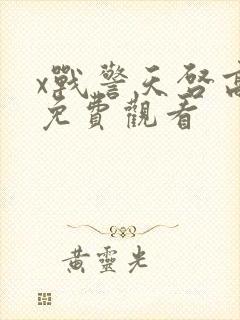 x戰警天啓高
免費觀看
黃靈光